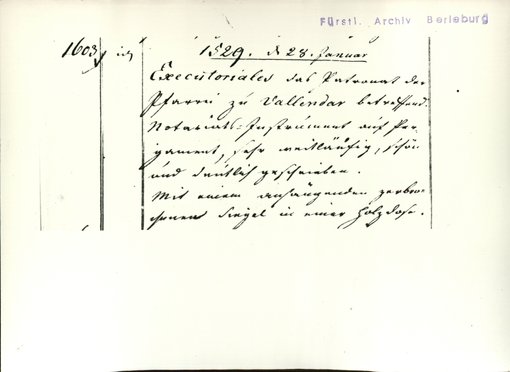 Fürstl. Archiv Berleburg
1603, 1529. d 28. Januar
Executoriales das Patronat der
Pfarrei zu Vallendar betreffend.
Notariats-Instrument auf Per-
gament, sehr weitläufig, schön
und deutlich geschrieben.
Mit einem anhängenden zerbro-
chenen Siegel in einer Holzdose.